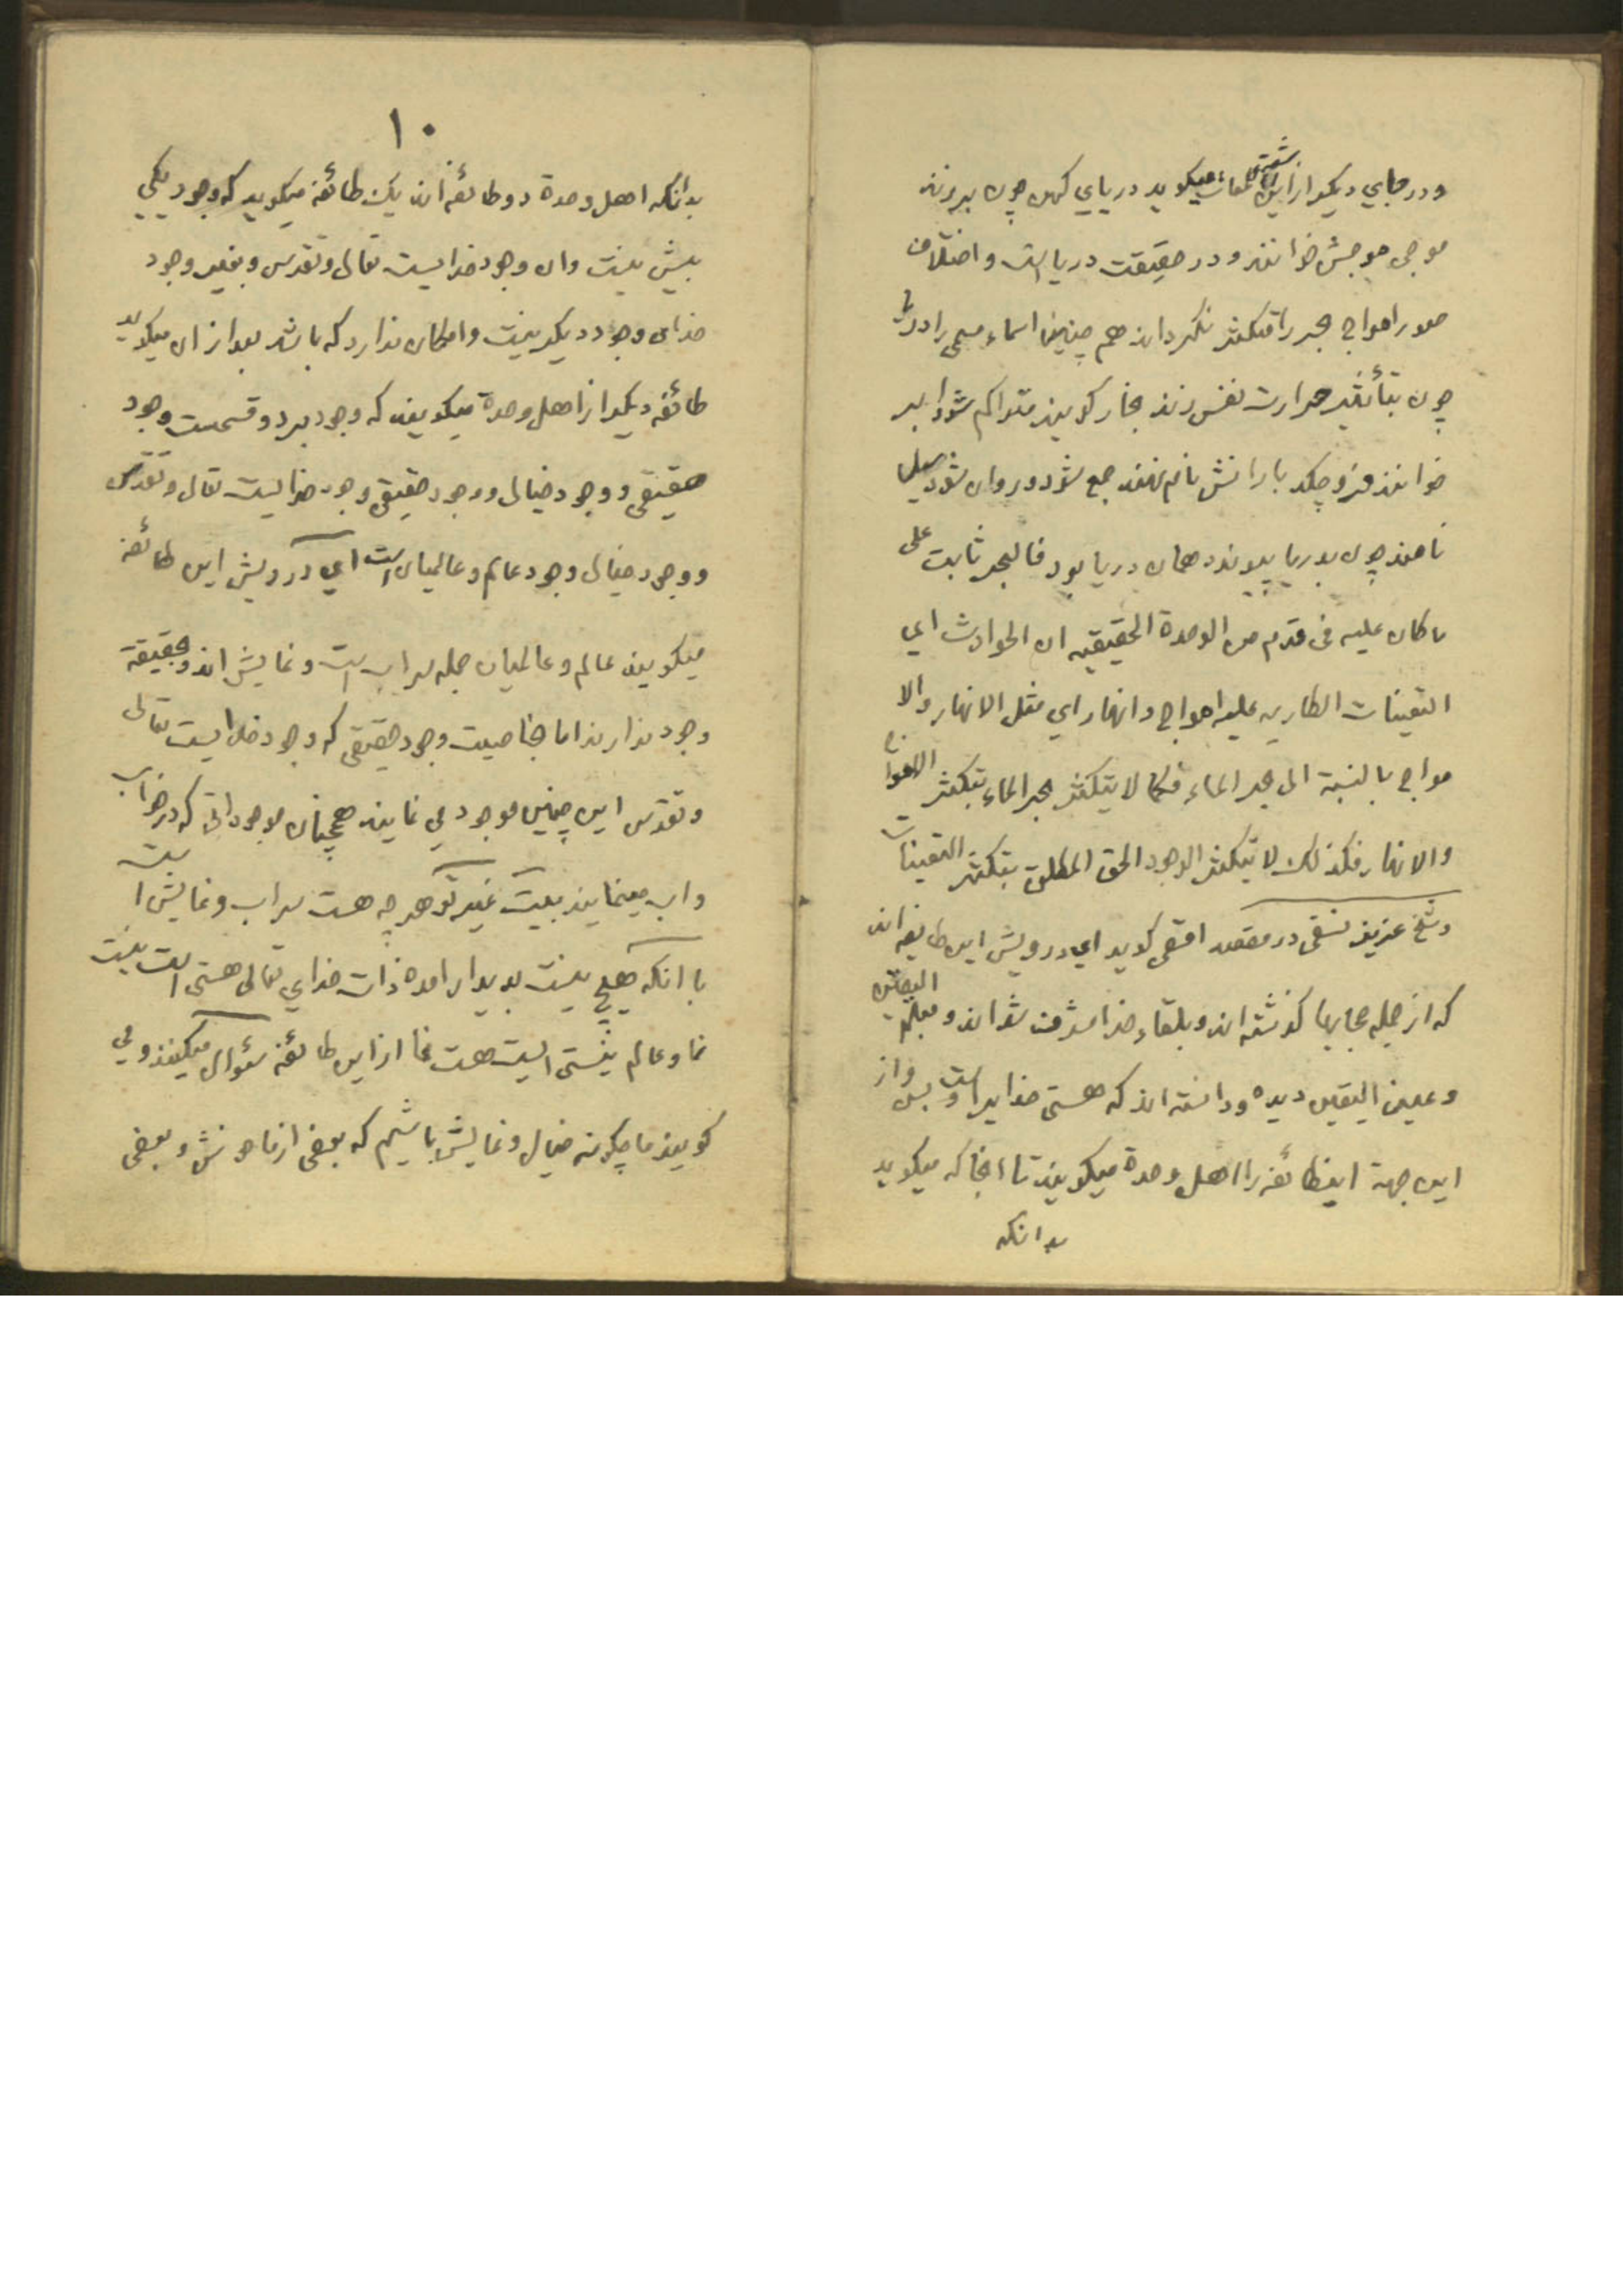 ودر جاي ديكر از اين لمعات ميكويد درياي كهن چون برزند
موجى موجش خوانند ودر حقيقت درياست واختلاف
صور امواج بحر را متكثر نكرداند هم چنين اسماء مسمى را دريا
چون بتأثير حرارت نفس زند بخار كويند متراكم شود ابر
خوانند فرو چكد بارانش نام نهند جمع شود وروان شود سيل
نامند چون بدريا پيوندد همان دريا بود فالبحر ثابت على
ما كان عليه فى قدم من الوحدة الحقيقيه ان الحوادث اي
التعينات الطاريه عليه امواج وانهار اي مثل الانهار والا
مواج بالنسبة الى بحر الماء فكما لا يتكثر بحر الماء بتكثر الامواج
والانهار فكذلك لا يتكثر الوجود الحق المطلق بتكثر التعينات
وشيخ عزيز نسفى در مقصد اقصى كويد اي درويش اين طايفه اند
كه از جمله حجابها كذشته اند وبلقاء خدا مشرف شده اند وبعلم اليقين
وعين اليقين ديده ودانسته اند كه هستى خدايراست وبس واز
اين جهة اينطائفه را اهل وحدة ميكويند تا انجا كه ميكويد
بدانكه
١٠
بدانكه اهل وحدة دو طائفه اند يك طائفه ميكويد كه وجود يكي
بيش نيست وان وجود خدايست تعالى وتقدس وبغير وجود
خداى وجود ديكر نيست وامكان ندارد كه باشد بعد از ان ميكويد
طائفه ديكر از اهل وحدة ميكويند كه وجود بر دو قسمست وجود
حقيقى ووجود خيالى ووجود حقيقى وجود خدايست تعالى وتقدس
ووجود خيالى وجود عالم وعالميان است اي درويش اين طائفه
ميكويند عالم وعالميان جمله سراب است ونمايش اند وبحقيقة
وجود ندارند اما بخاصيت وجود حقيقى كه وجود خدايست تعالى
وتقدس اين چنين موجود مي نمايند همچنان موجوداتى كه در خواب
واب مينمايند بيت غير تو هر چه هست سراب ونمايش است
با انكه هيچ نيست پديدار امده ذات خداي تعالى هستى است نيست
نما وعالم نيستى است هست نما از اين طائفه سؤال ميكنند ومي
كويند ما چكونه خيال ونمايش باشيم كه بعضى از ما خوش وبعضى